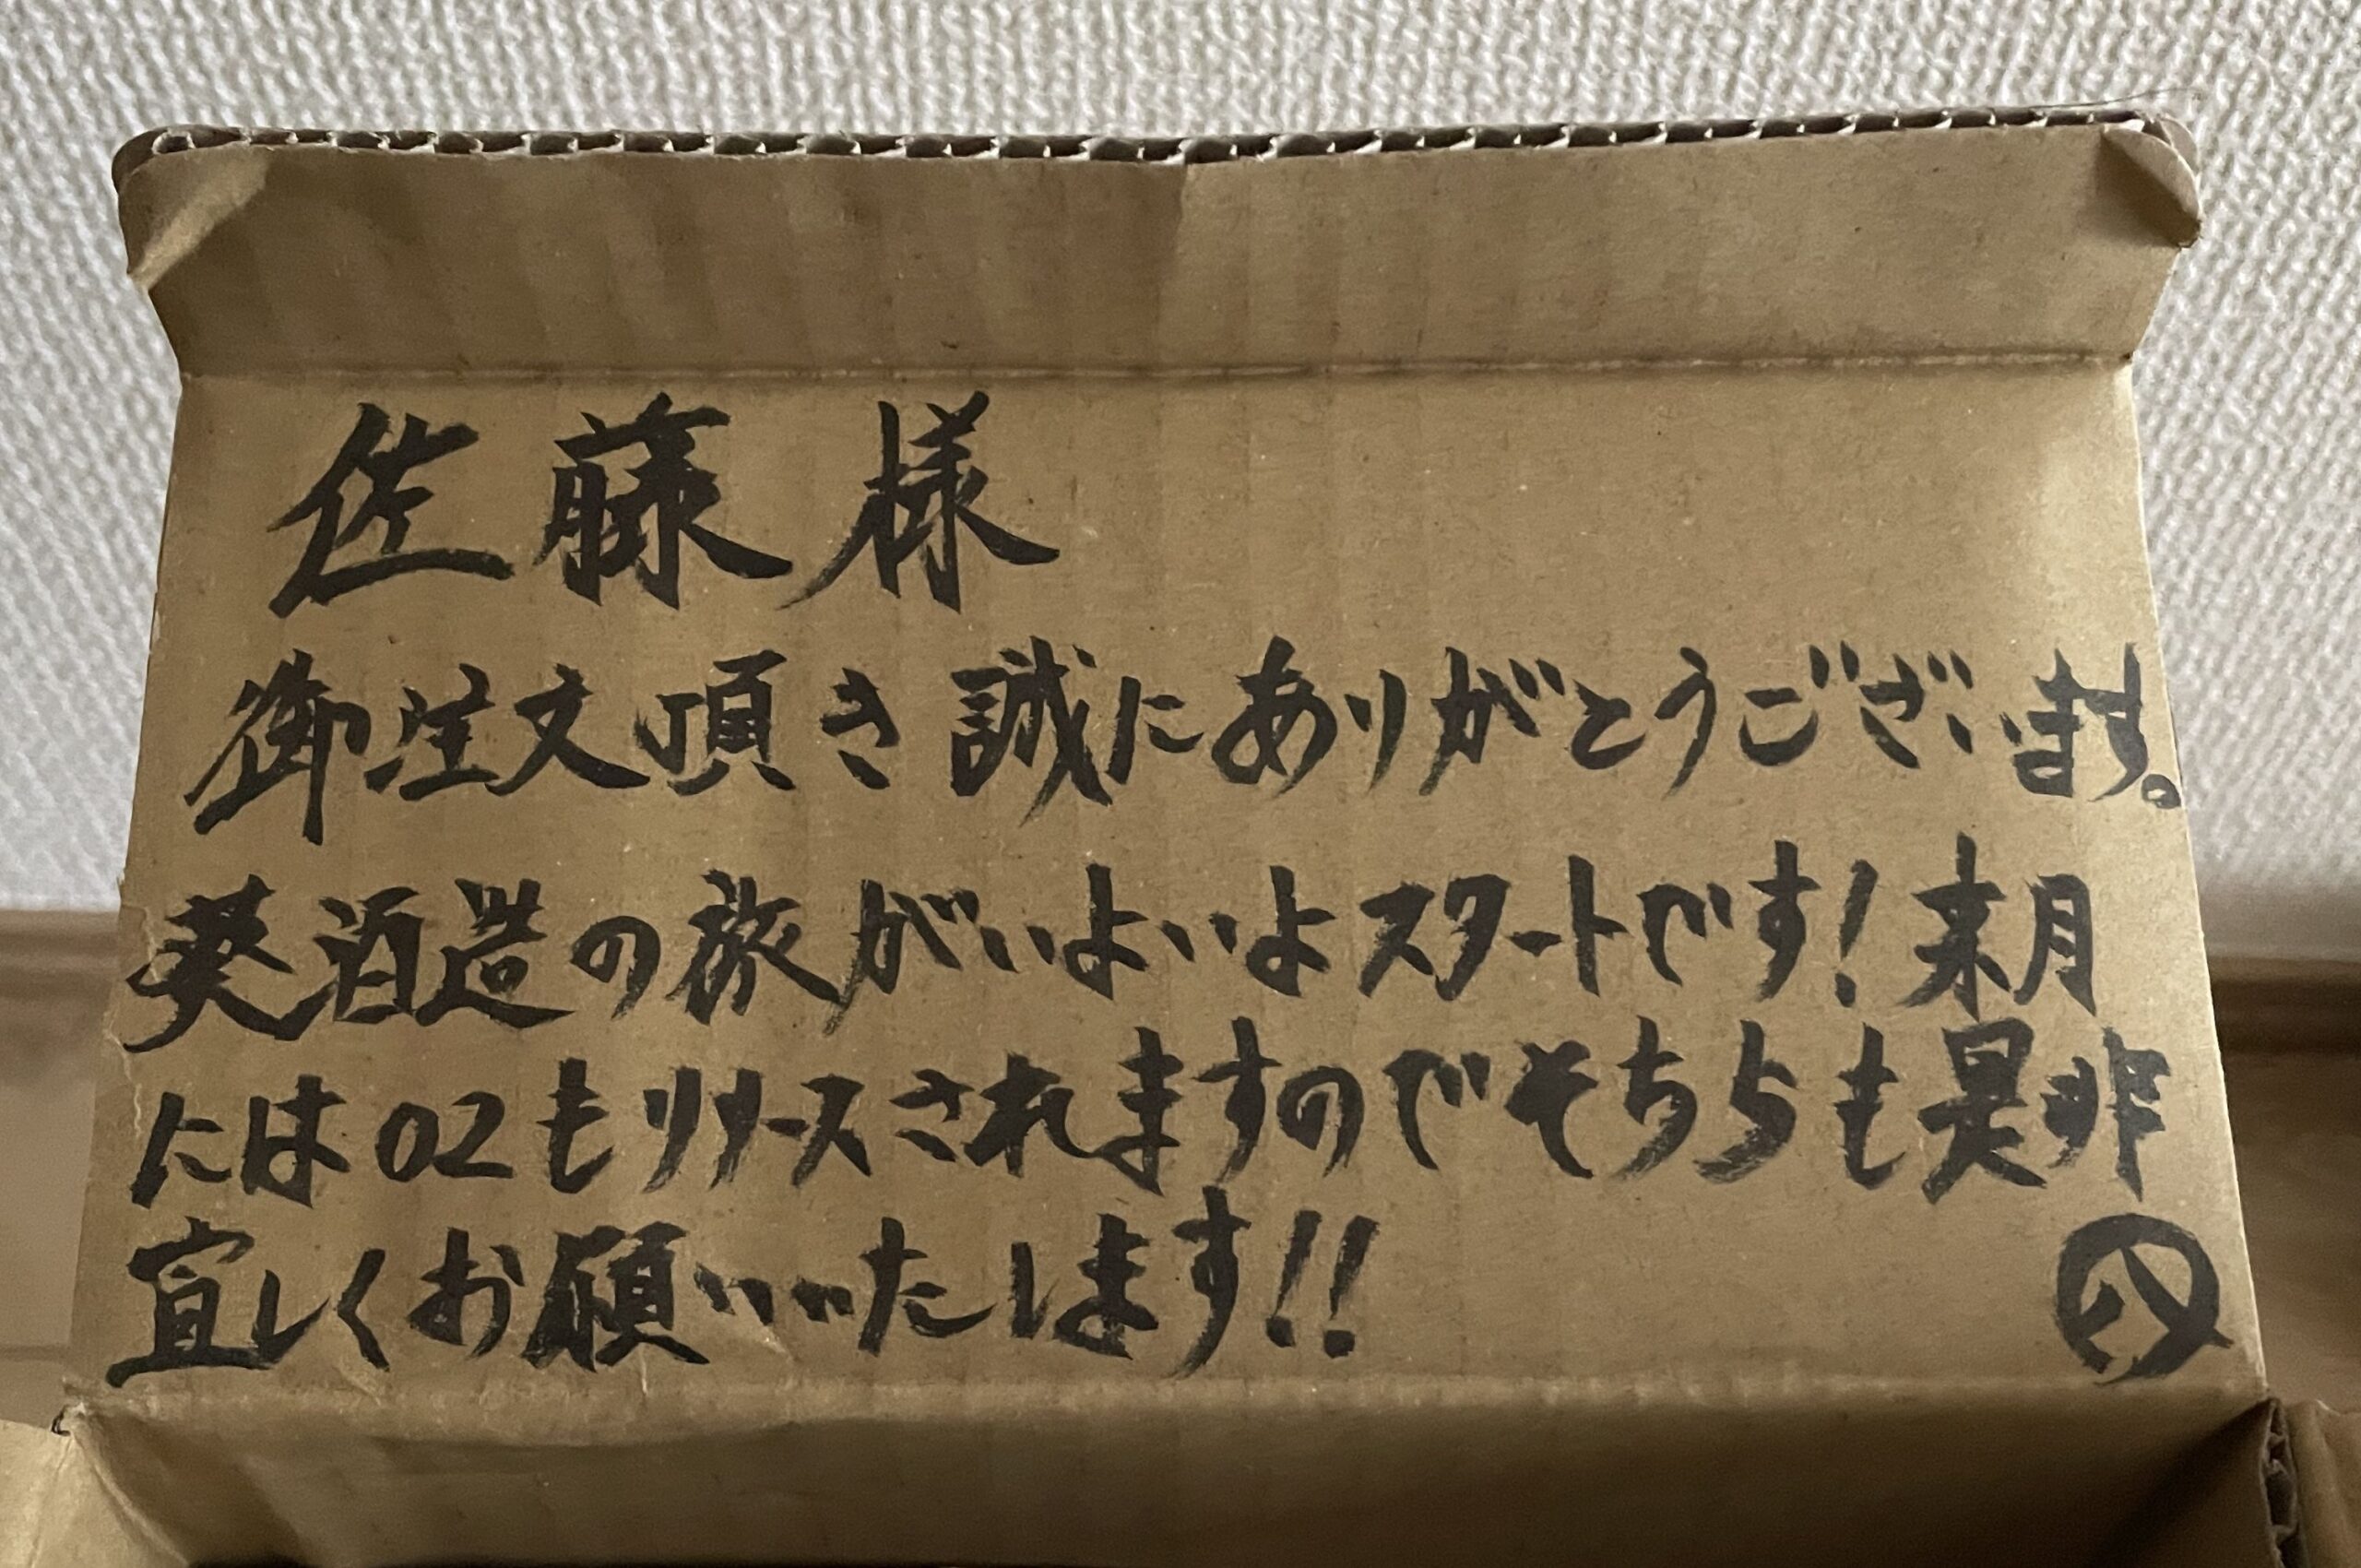 佐藤様
御注文頂き誠にありがとうございます。
葵酒造の旅がいよいよスタートです!来月
には02もリリースされますのでそちらも是非
宜しくお願いいたします!!
八